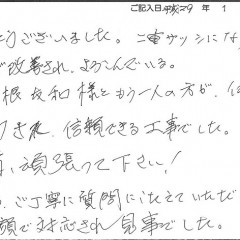 ご記入日 平成29年 1
ございました。二重サッシにな
改善され、よろこんでいる。
根友和様ともう一人の方が、
され、信頼できる工事でした。
頑張って下さい!
ご丁寧に質問にこたえていただ
で対応され見事でした。